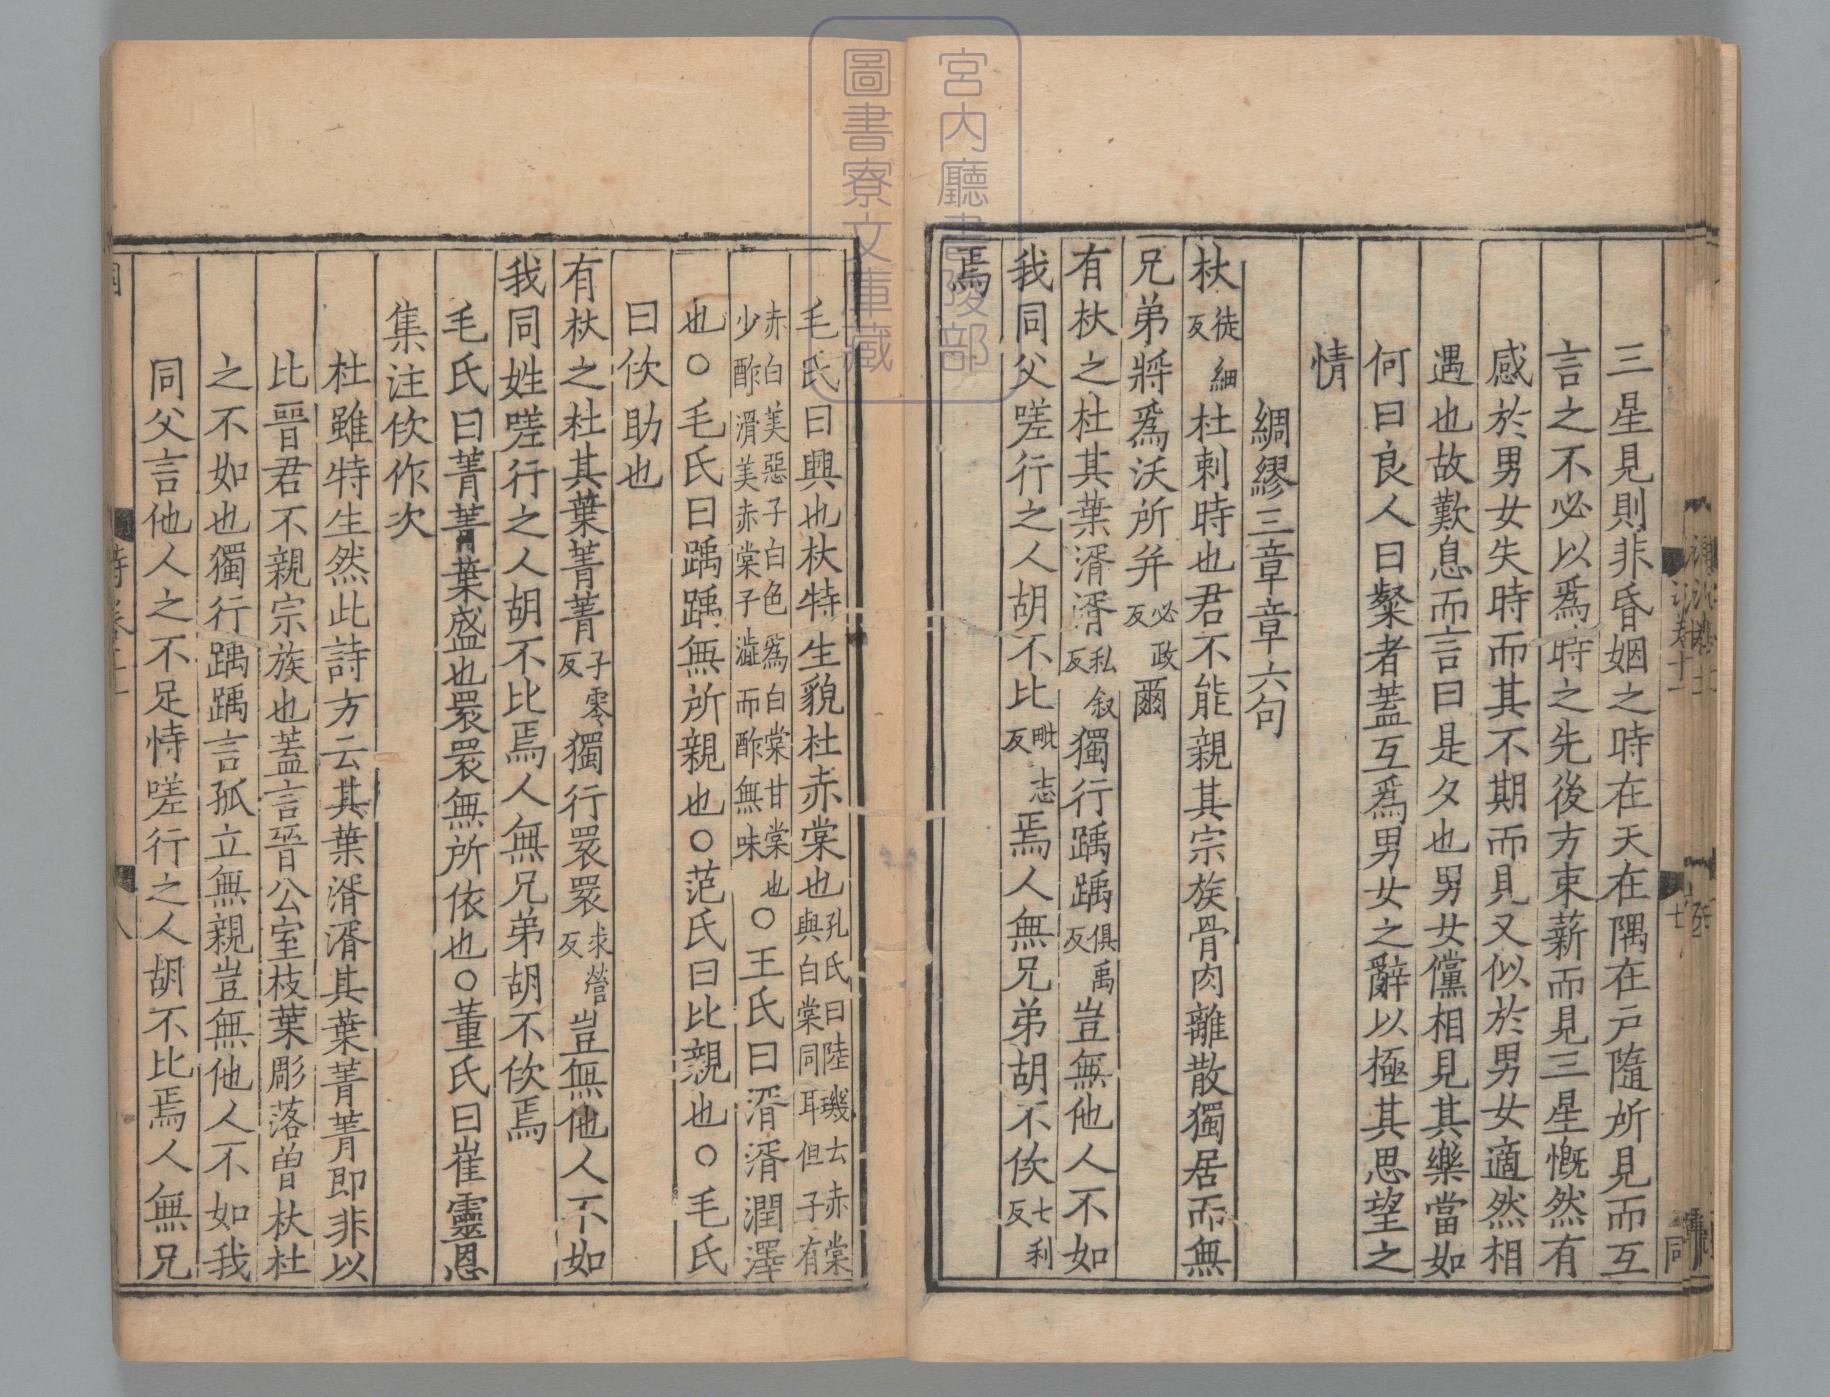 三星見則非昏姻之時在天在隅在戸隨所見而互
言之不必以爲時之先後方束薪而見三星慨然有
感於男女失時而其不期而見又似於男女適然相
遇也故歎息而言曰是夕也男女儻相見其樂當如
何曰良人曰粲者蓋互爲男女之辭以極其思望之
情
綢繆三章章六句
杕徒細反杜刺時也君不能親其宗族骨肉離散獨居而無
兄弟將爲沃所并必政反爾
有杕之杜其葉湑湑私叙反獨行踽踽俱禹反豈無他人不如
我同父嗟行之人胡不比毗志反焉人無兄弟胡不佽七利反
焉
毛氏曰興也杕特生貌杜赤棠也孔氏曰陸璣云赤棠與白棠同耳但子有
赤白美惡子白色爲白棠甘棠也少酢滑美赤棠子澁而酢無味○王氏曰湑湑潤澤
也○毛氏曰踽踽無所親也○范氏曰比親也○毛氏
曰佽助也
有杕之杜其葉菁菁子零反獨行睘睘求營反豈無他人不如
我同姓嗟行之人胡不比焉人無兄弟胡不佽焉
毛氏曰菁菁葉盛也睘睘無所依也○董氏曰崔靈恩
集注佽作次
杜雖特生然此詩方云其葉湑湑其葉菁菁即非以
比晉君不親宗族也蓋言晉公室枝葉彫落曽杕杜
之不如也獨行踽踽言孤立無親豈無他人不如我
同父言他人之不足恃嗟行之人胡不比焉人無兄
宮内廳書陵部
圖書寮文庫藏